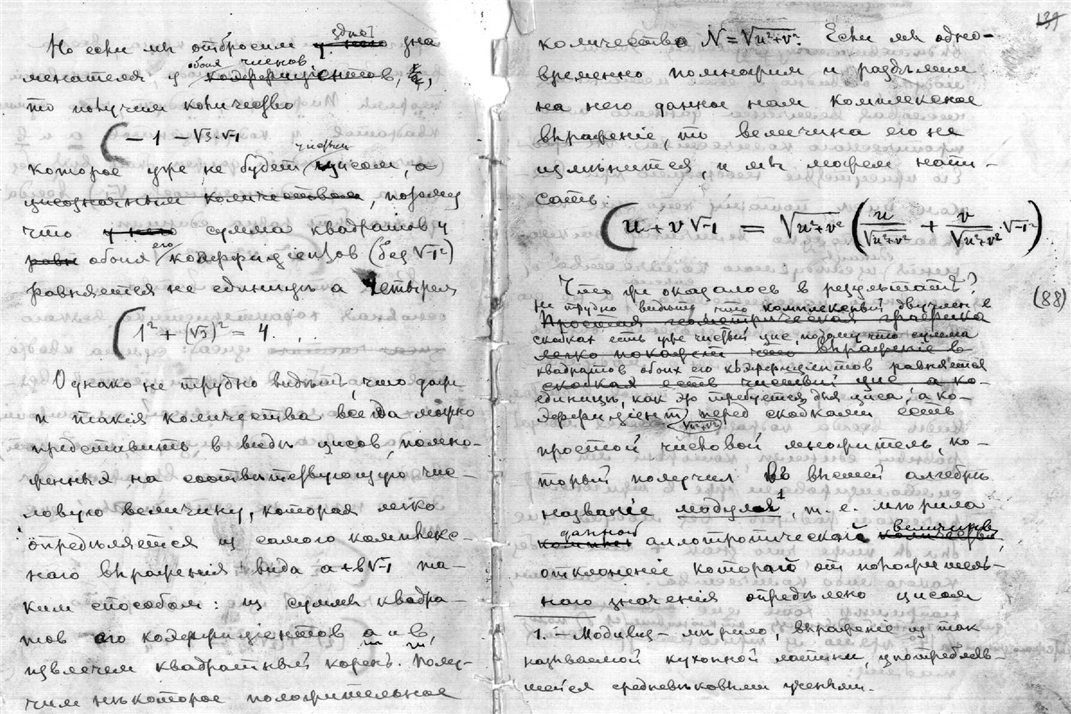 Но если мы отбросим здѣсь зна
менателя у обоих членов
коэффиціентов, 2,
то получим количество
- 1 - √3·√-1
которое уже не будет чистым цисом, а
цисозначным количеством, потому
что сумма квадратов у
обоих его коэффиціентов (без √-1)
равняется не единицѣ а четырем
1² + (√3)² = 4.
Однако не трудно видѣть, что даже
и такія количества всегда можно
представить в видѣ цисов, помно-
женных на соотвѣтствующую чис-
ловую величину, которая легко
опредѣляется из самого комплекс-
наго выраженія вида a+b√-1 та-
ким способом: из суммы квадра-
тов его коэффиціентов a и b,
извлечем квадратный корень. Полу-
чим нѣкоторое положительное
139
количество N = √u²+v². Если мы одно-
временно помножим и раздѣлим
на него данное нам комплексное
выраженіе, то величина его не
измѣнится и мы можем напи-
сать:
u + v√-1 = √u²+v² (u/√u²+v² + v/√u²+v² · √-1)
(88)
Что же оказалось в результатѣ?
Не трудно видѣть что комплексный двучлен в
скобках есть уже чистый цис, потому что сумма
квадратов обоих его коэффиціентов равняется
единицѣ, как это требуется для циса, а ко-
эффиціент √u²+v² перед скобками есть
простой числовой множитель, ко-
торый получил въ высшей алгебрѣ
названіе модуля¹, т. е. мѣрила
данной аллотропической величины,
отклоненіе которой от положитель-
наго значенія опредѣлено цисом
1. – Модилиз – мѣрило, выраженіе из так
называемой кухонной латыни, употребляв-
шейся средневѣковыми учеными.